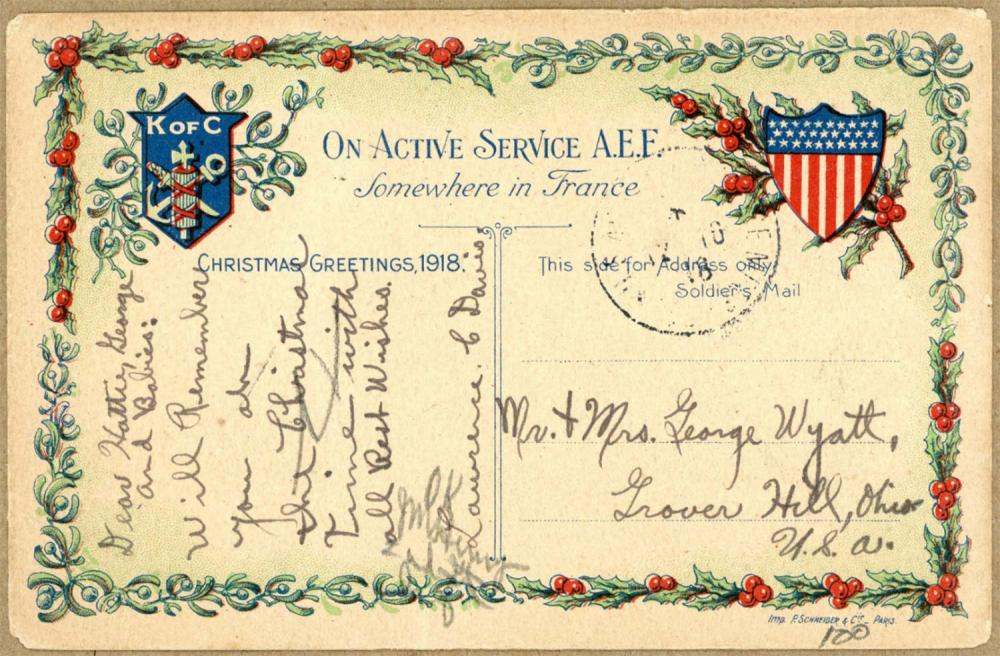 K OF C
ON ACTIVE SERVICE A.E.F.
Somewhere in France
CHRISTMAS GREETINGS, 1918.
This side for Address only.
Soldier's Mail
Dear Hattie George
and Babies:
Will Remember
You at
the Christmas
Time with
all Best Wishes.
Lawrence C Davis
Mr. & Mrs. George Wyatt,
Grover Hill, Ohio
U.S.A.
IMP. P. SCHNEIDER & Cie _ PARIS.
100